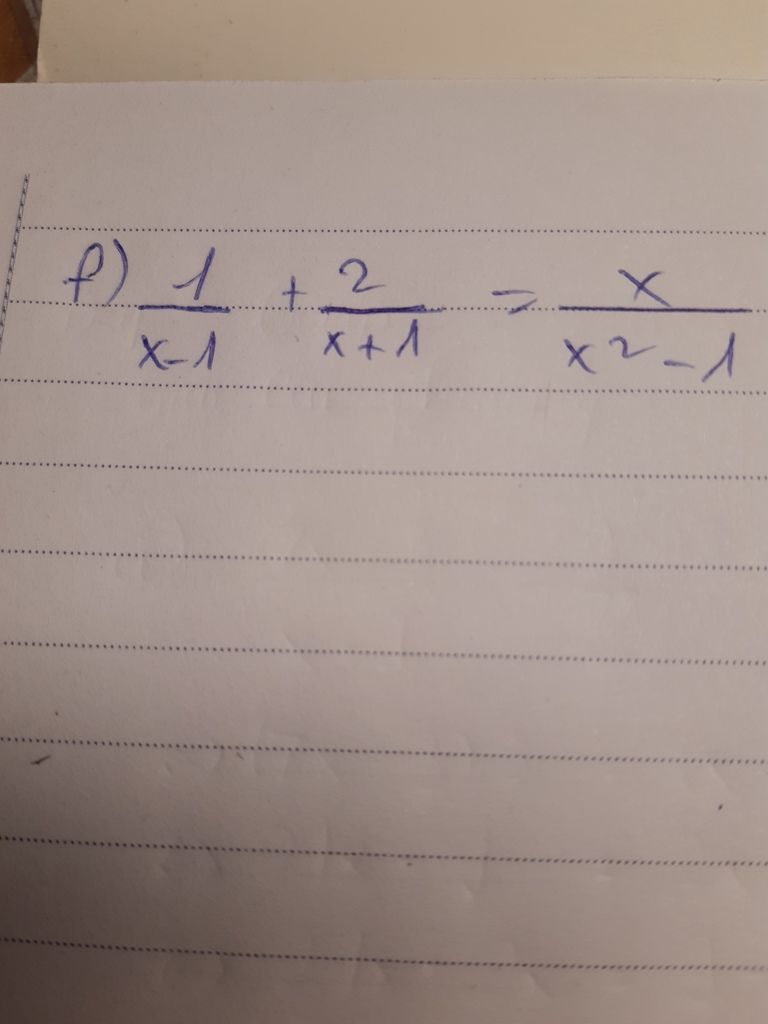 f) 1/(x-1) + 2/(x+1) = x/(x²-1)